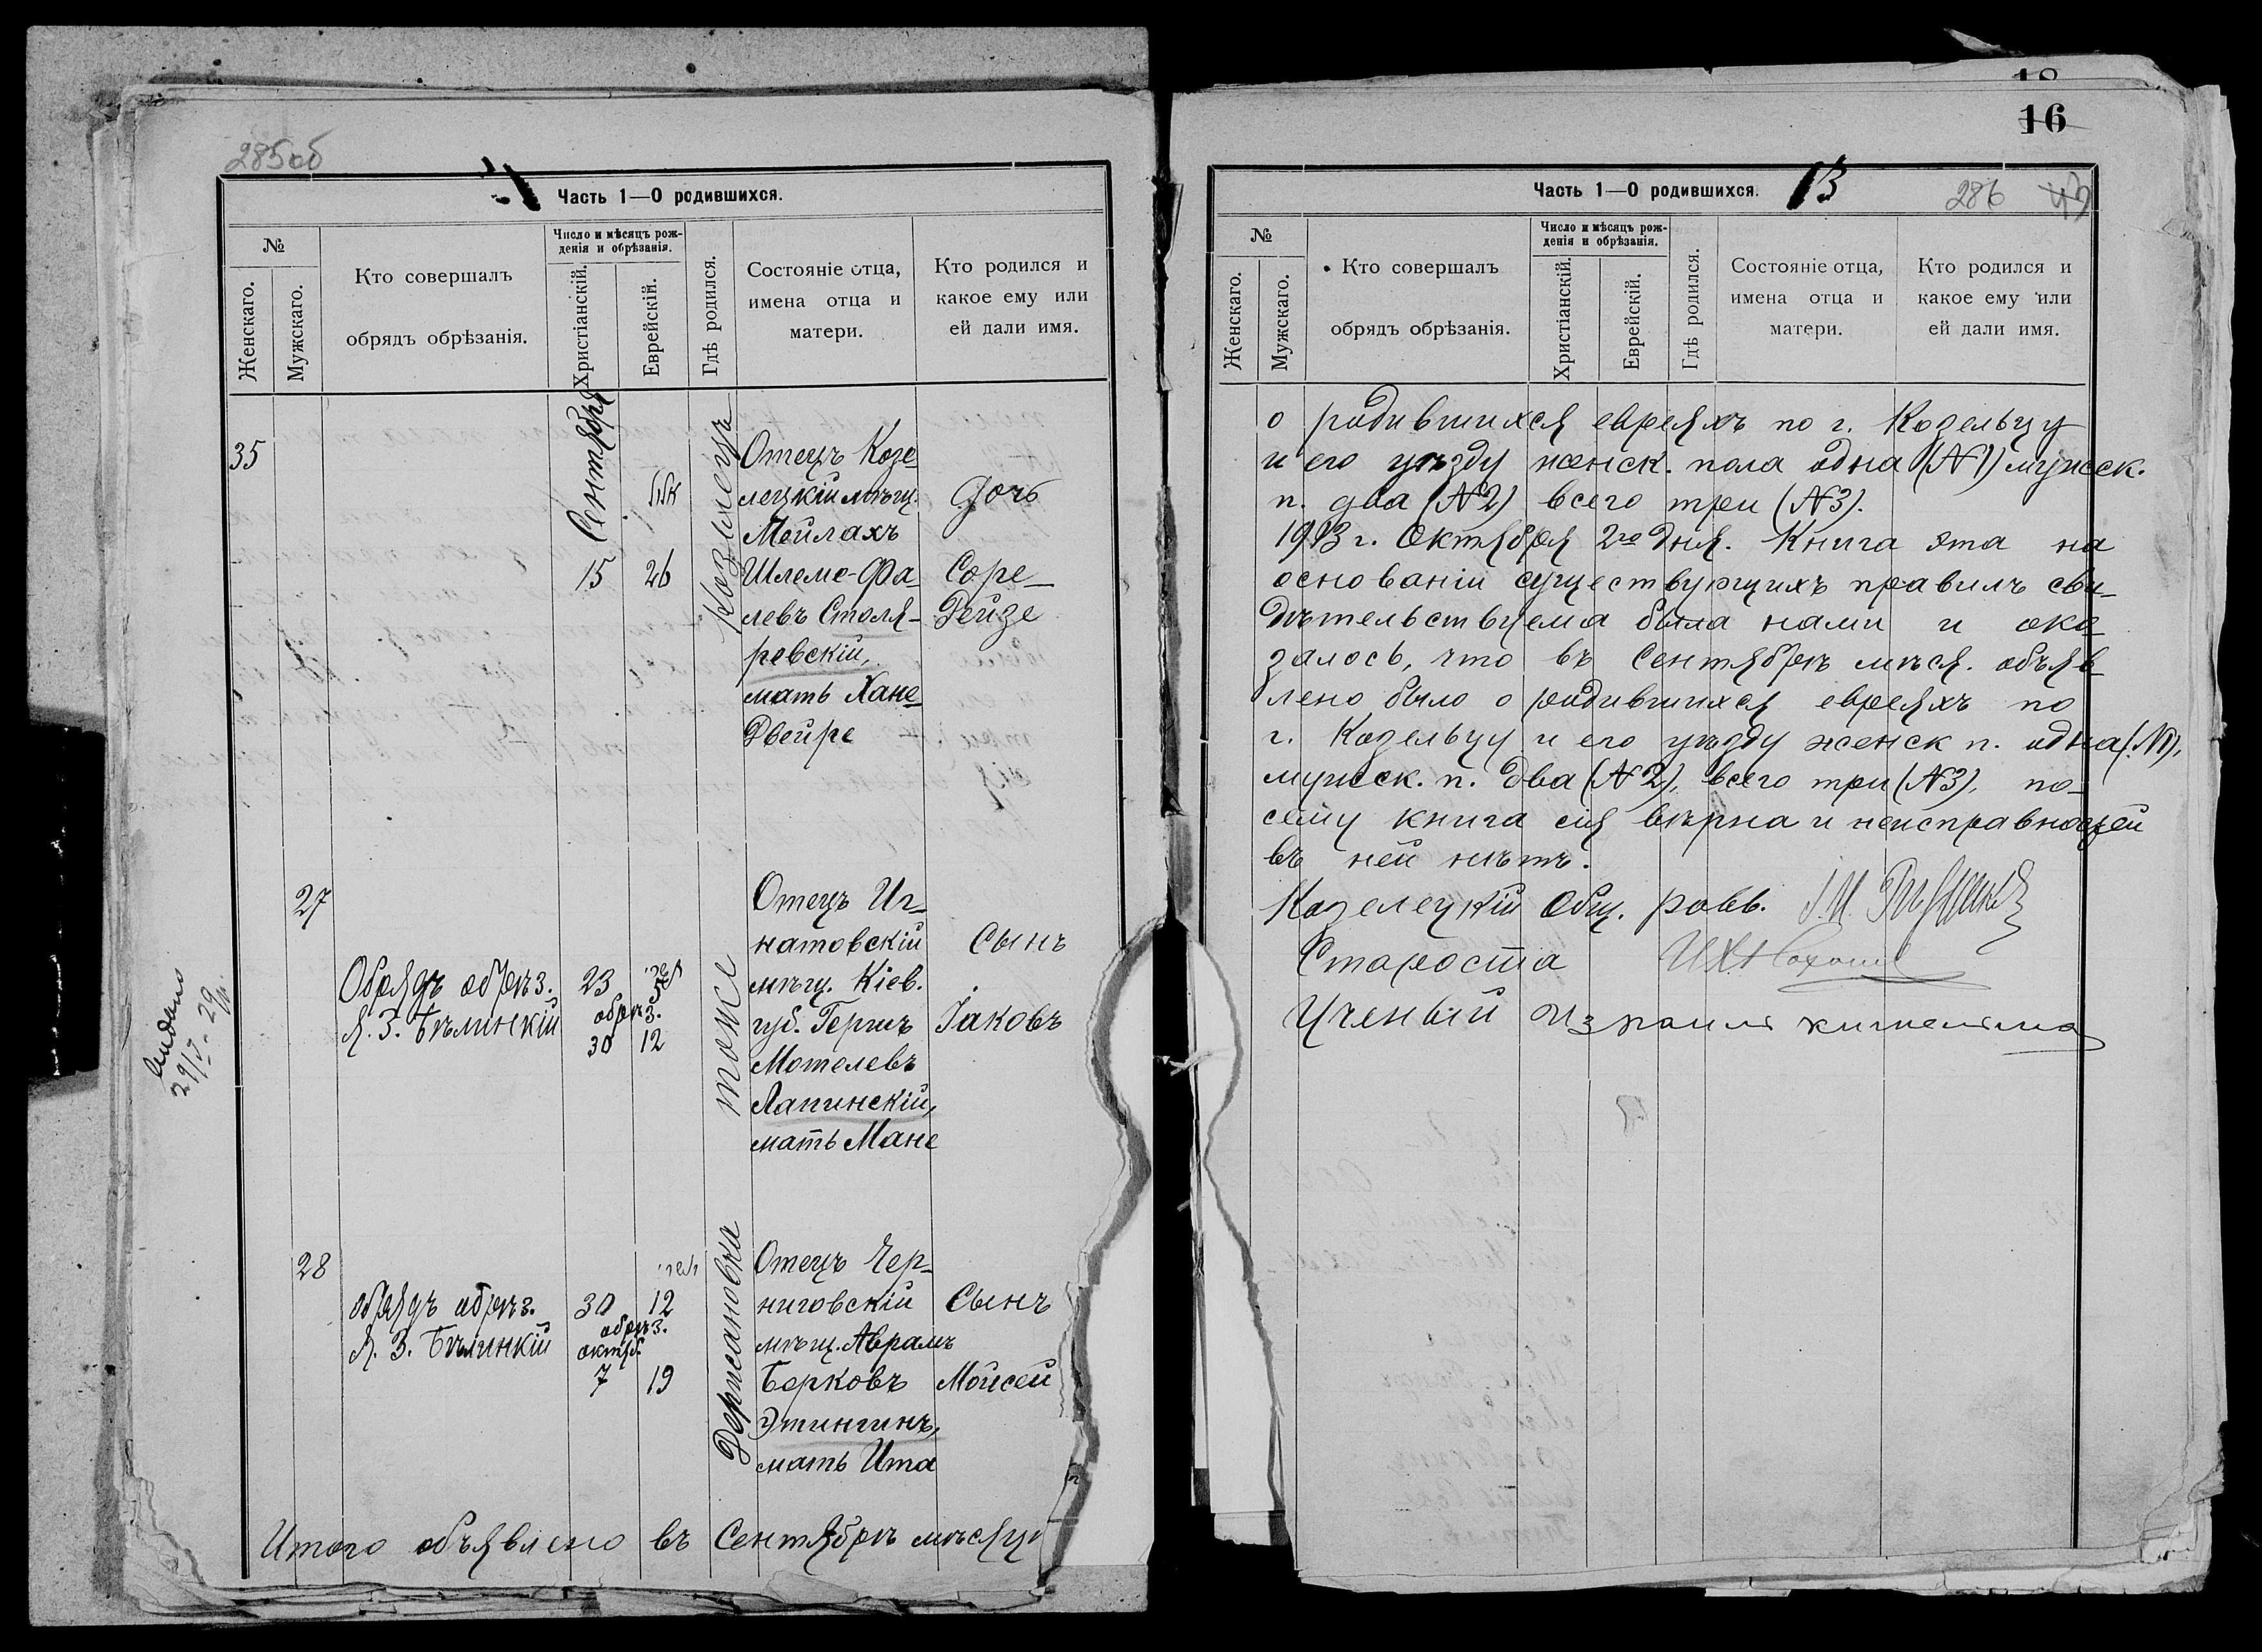 285об
Часть 1—О родившихся.
№
Женскаго.
Мужскаго.
Кто совершалъ
обрядъ обрѣзанія.
Число и мѣсяцъ рож-
денія и обрѣзанія.
Христіанскій.
Еврейскій.
Гдѣ родился.
Состояніе отца,
имена отца и
матери.
Кто родился и
какое ему или
ей дали имя.
35
Сентября
15
26
Козелецъ
Отецъ Козе-
лецкій мѣщ.
Мейлахъ
Шлемо-Фа-
левъ Столя-
ревскій,
мать Хане-
Двейре
Дочь
Соре-
Дейзе
27
Обрядъ обрѣз.
Я. З. Бѣлинскій
23
5
обрѣз.
30 12
тоже
Отецъ Иг-
натовскій
мѣщ. Кіев.
губ. Гершъ
Мотелевъ
Лапинскій,
мать Мане
Сынъ
Іаковъ
28
обрядъ обрѣз.
Я. З. Бѣлинкій
30 12
обрѣз.
октяб.
7 19
Держановка
Отецъ Чер-
ниговскій
мѣщ. Аврамъ
Берковъ
Этингинъ,
мать Ита
Сынъ
Мойсей
Итого объявлено въ Сентябрѣ мѣсяцѣ
16
Часть 1—О родившихся.
13
286
№
Женскаго.
Мужскаго.
Кто совершалъ
обрядъ обрѣзанія.
Число и мѣсяцъ рож-
денія и обрѣзанія.
Христіанскій.
Еврейскій.
Гдѣ родился.
Состояніе отца,
имена отца и
матери.
Кто родился и
какое ему или
ей дали имя.
о родившихся евреяхъ по г. Козельцу
и его уѣзду женск. пола одна (№1) мужеск.
п. два (№2) всего три (№3).
1913 г. Октября 2го дня. Книга эта на
основаніи существующихъ правилъ сви-
дѣтельствуема была нами и ока-
залось, что въ Сентябрѣ мѣся. объяв-
лено было о родившихся евреяхъ по
г. Козельцу и его уѣзду женск п. одна (№1),
мужск. п. два (№2), всего три (№3), по-
сему книга сія вѣрна и неисправностей
въ ней нѣтъ.
Козелецкій Общ. равв.
Староста
Ученый Израиль